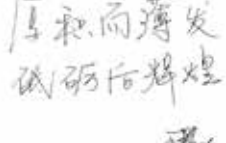 厚积而薄发
砥砺后辉煌